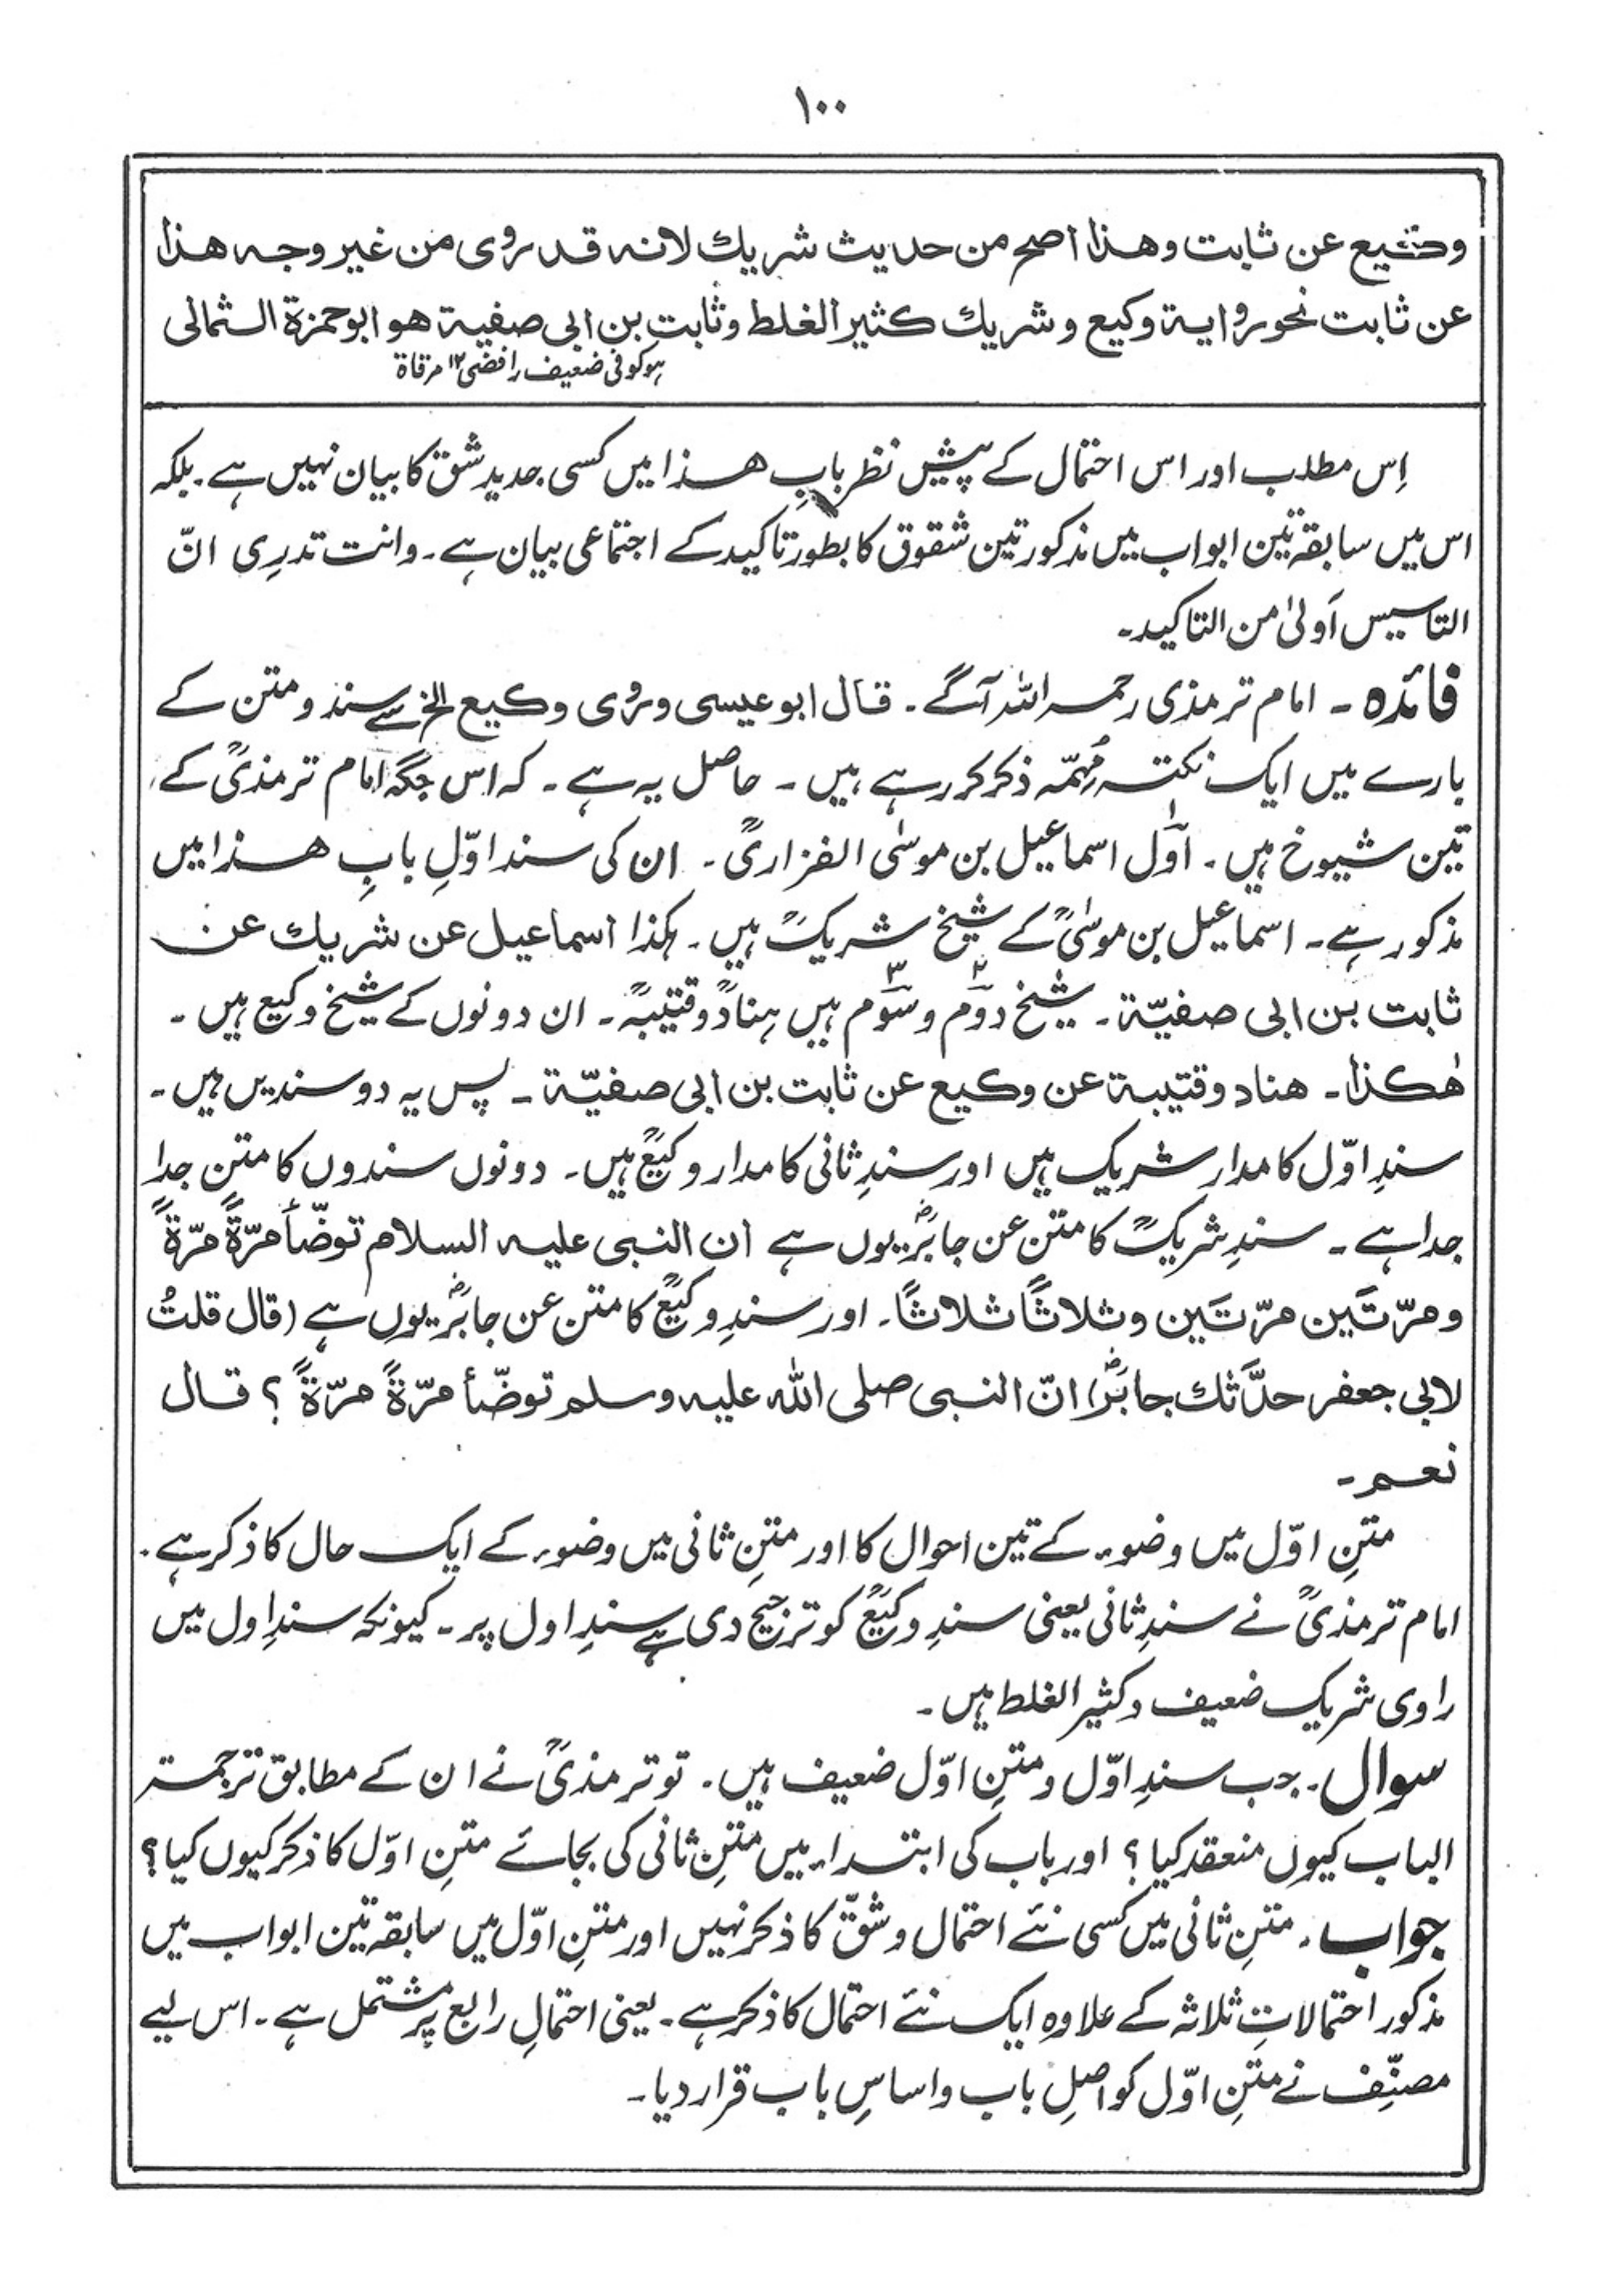 ۱۰۰
وكيع عن ثابت وهذا اصح من حديث شريك لانه قد روى من غير وجه هذا
عن ثابت نحو رواية وكيع وشريك كثير الغلط وثابت بن ابى صفية هو ابوحمزة الثمالى
ہو كوفى ضعيف رافضى ۱۲ مرقاة
اِس مطلب اور اس احتمال کے پیش نظر بابِ ھذا میں کسی جدید شق کا بیان نہیں ہے۔ بلکہ
اس میں سابقہ تین ابواب میں مذکور تین شقوق کا بطور تاکید کے اجتماعی بیان ہے۔ وانت تدرِی انّ
التاسیس اَولیٰ من التاکید۔
فائدہ ۔ امام ترمذی رحمہ اللہ آگے۔ قال ابوعیسی وروی وکیع الخ سے سند و متن کے
بارے میں ایک نکتہ مُہمّہ ذکر کر رہے ہیں ۔ حاصل یہ ہے ۔ کہ اس جگہ امام ترمذیؒ کے
تین شیوخ ہیں ۔ اوّل اسماعیل بن موسٰی الفزاریؒ ۔ ان کی سند اوّلِ بابِ ھذا میں
مذکور ہے ۔ اسماعیل بن موسٰیؒ کے شیخ شریکؒ ہیں ۔ ہکذا اسماعیل عن شریك عن
ثابت بن ابی صفیّة ۔ شیخ دوّم ۲ و سوّم ۳ ہیں ہنادؒ و قتیبہؒ ۔ ان دونوں کے شیخ وکیع ہیں ۔
ھٰكذا ۔ هناد وقتيبة عن وكيع عن ثابت بن ابى صفيّة ۔ پس یہ دو سندیں ہیں ۔
سندِ اوّل کا مدار شریک ہیں اور سندِ ثانی کا مدار وکیعؒ ہیں ۔ دونوں سندوں کا متن جدا
جدا ہے ۔ سندِ شریکؒ کا متن عن جابرؓ یوں ہے ان النبی علیہ السلام توضّأ مرّةً مرّةً
ومرّتَین مرّتَین وثلاثًا ثلاثًا ۔ اور سندِ وکیعؒ کا متن عن جابرؓ یوں ہے (قال قلتُ
لابی جعفر حدَّثك جابرؓ انّ النبی صلی اللہ علیہ وسلم توضّأ مرّةً مرّةً ؟ قال
نعم ۔
متنِ اوّل میں وضوء کے تین احوال کا اور متنِ ثانی میں وضوء کے ایک حال کا ذکر ہے ۔
امام ترمذیؒ نے سندِ ثانی یعنی سندِ وکیعؒ کو ترجیح دی ہے سندِ اول پر ۔ کیونکہ سندِ اول میں
راوی شریک ضعیف و کثیر الغلط ہیں ۔
سوال ۔ جب سندِ اوّل و متنِ اوّل ضعیف ہیں ۔ تو ترمذیؒ نے ان کے مطابق ترجمۃ
الباب کیوں منعقد کیا ؟ اور باب کی ابتداء میں متنِ ثانی کی بجائے متنِ اوّل کا ذکر کیوں کیا ؟
جواب ۔ متنِ ثانی میں کسی نئے احتمال و شقّ کا ذکر نہیں اور متنِ اوّل میں سابقہ تین ابواب میں
مذکور احتمالاتِ ثلاثہ کے علاوہ ایک نئے احتمال کا ذکر ہے ۔ یعنی احتمالِ رابع پر مشتمل ہے ۔ اس لیے
مصنّف نے متنِ اوّل کو اصلِ باب و اساسِ باب قرار دیا ۔